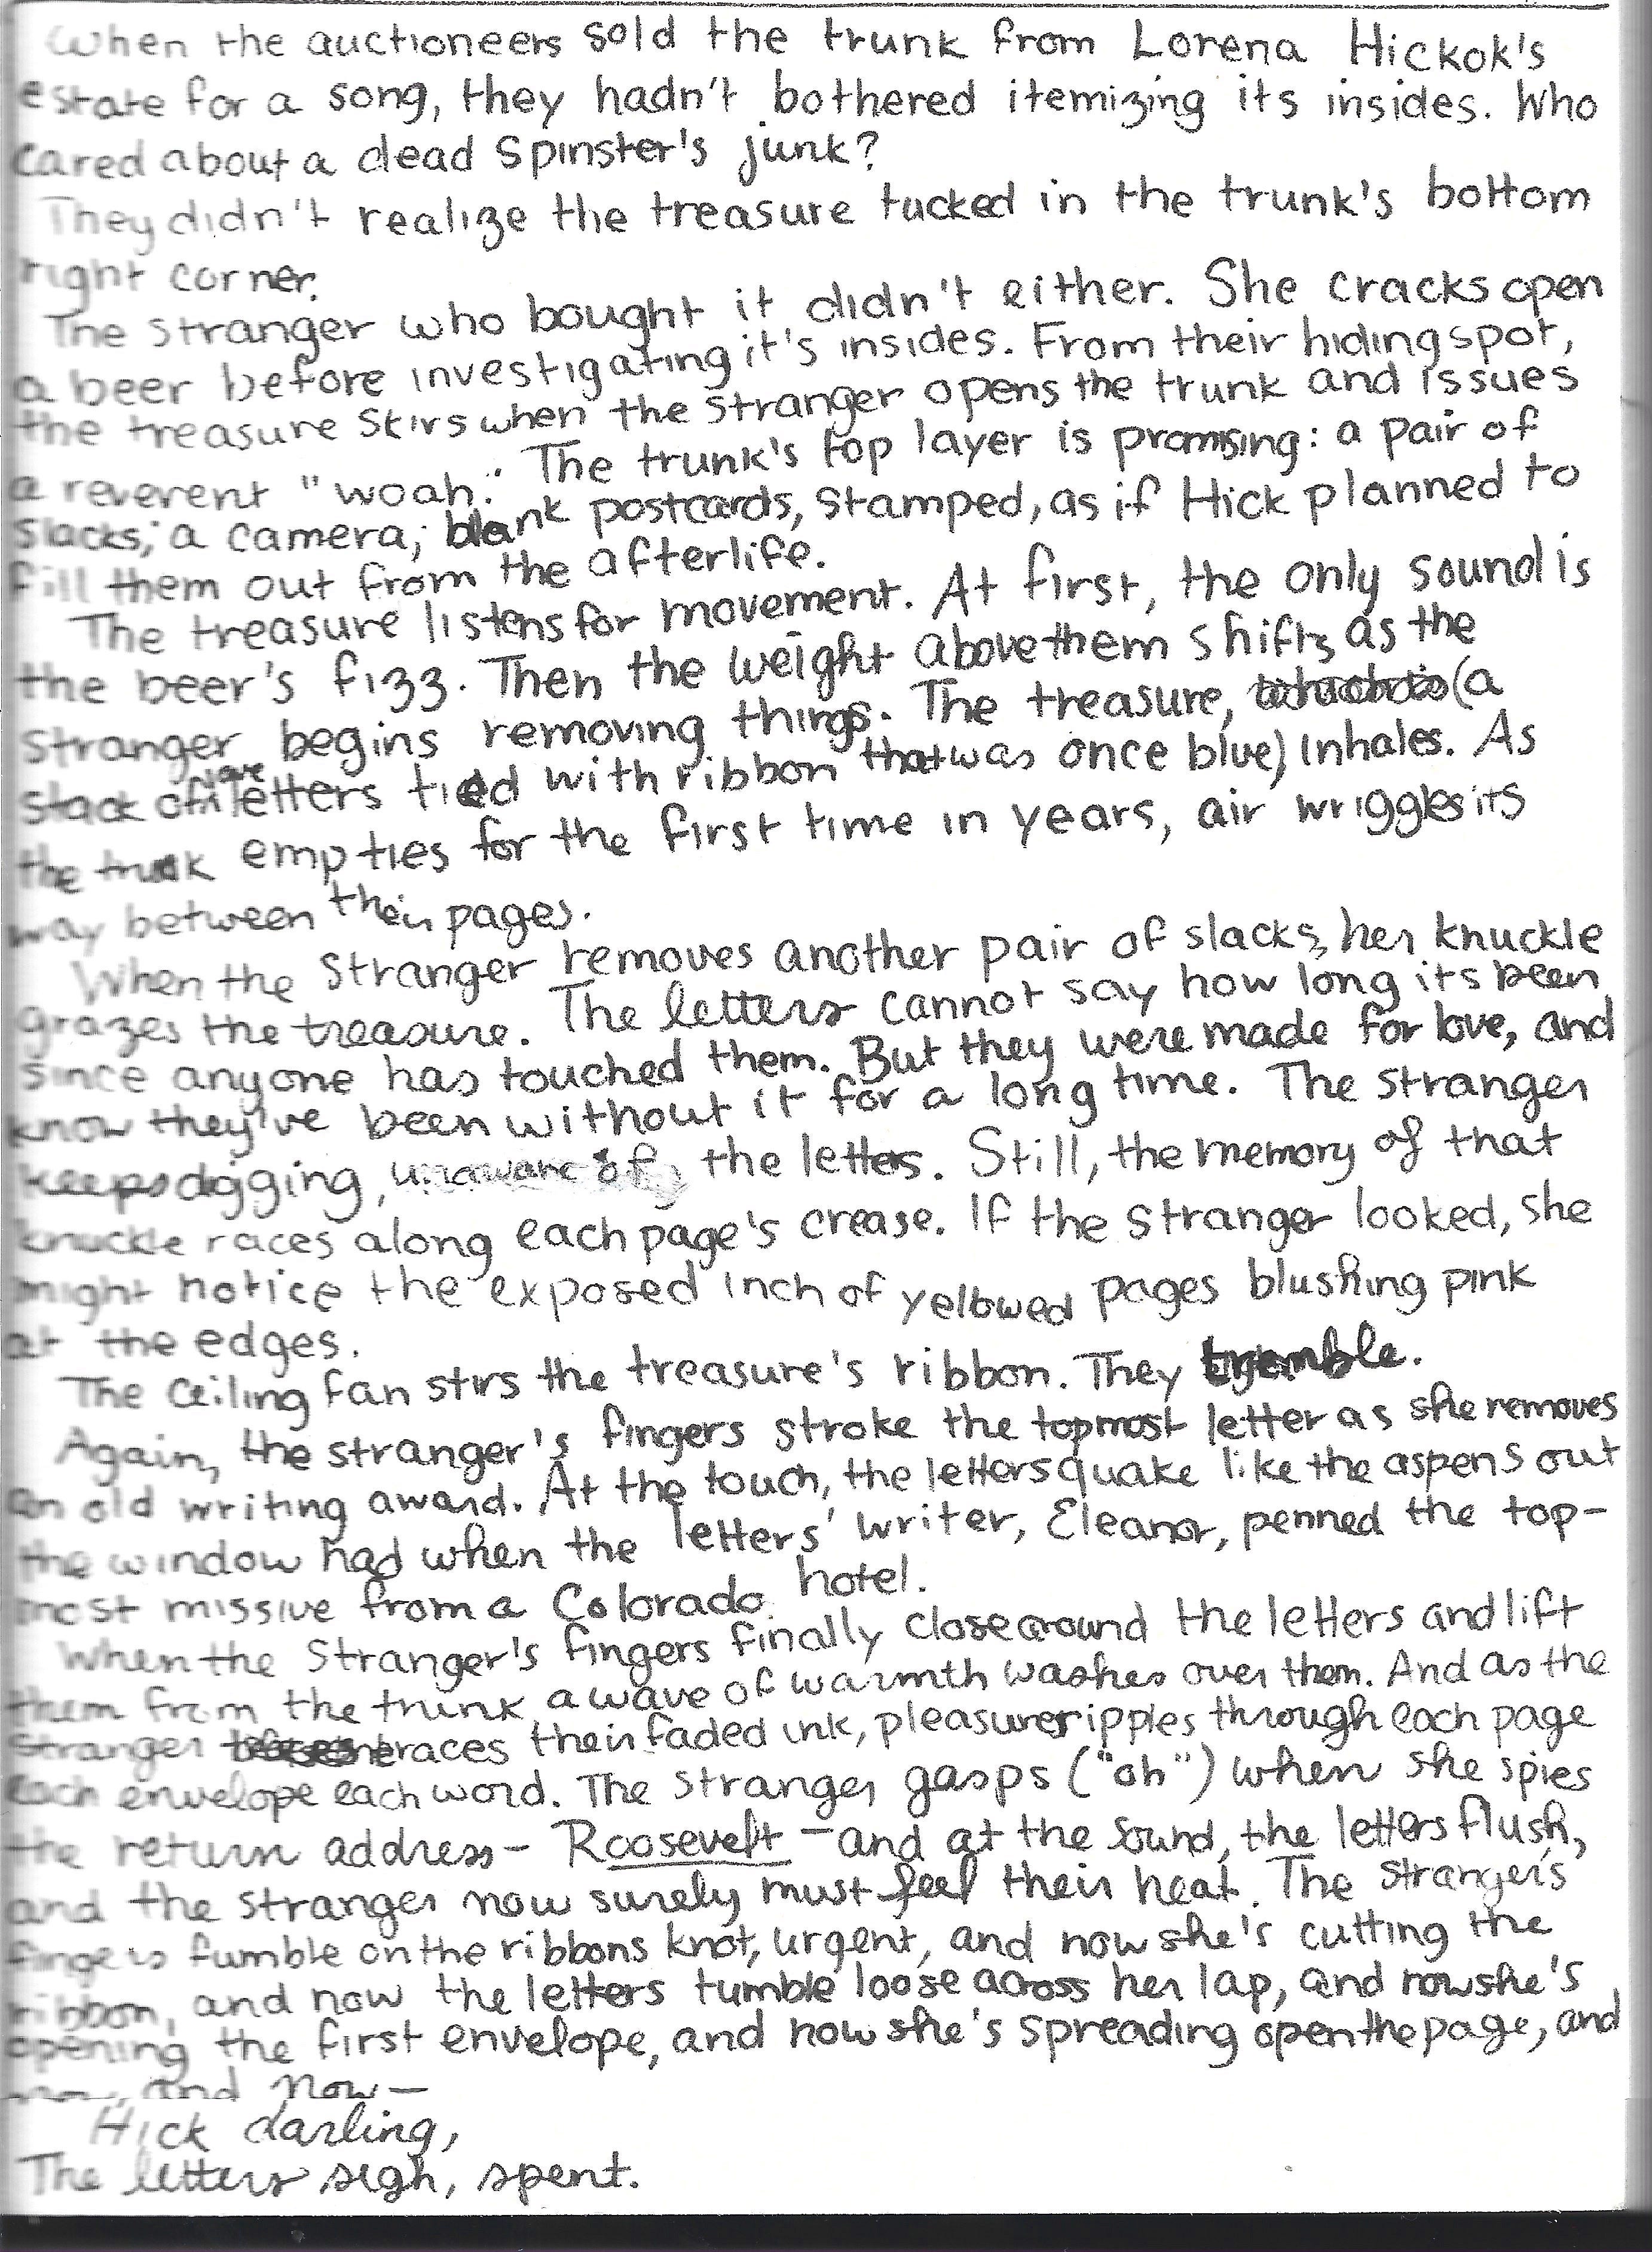 When the auctioneers sold the trunk from Lorena Hickok's
estate for a song, they hadn't bothered itemizing its insides. Who
cared about a dead spinster's junk?
They didn't realize the treasure tucked in the trunk's bottom
right corner.
The stranger who bought it didn't either. She cracks open
a beer before investigating it's insides. From their hiding spot,
the treasure stirs when the stranger opens the trunk and issues
a reverent "woah." The trunk's top layer is promising: a pair of
slacks; a camera; blank postcards, stamped, as if Hick planned to
fill them out from the afterlife.
The treasure listens for movement. At first, the only sound is
the beer's fizz. Then the weight above them shifts as the
stranger begins removing things. The treasure, (a
stack of love letters tied with ribbon that was once blue) inhales. As
the trunk empties for the first time in years, air wriggles its
way between their pages.
When the stranger removes another pair of slacks, her knuckle
grazes the treasure. The letters cannot say how long its been
since anyone has touched them. But they were made for love, and
know they've been without it for a long time. The stranger
keeps digging, unaware of the letters. Still, the memory of that
knuckle races along each page's crease. If the stranger looked, she
might notice the exposed inch of yellowed pages blushing pink
at the edges.
The ceiling fan stirs the treasure's ribbon. They tremble.
Again, the stranger's fingers stroke the topmost letter as she removes
an old writing award. At the touch, the letters quake like the aspens out
the window had when the letters' writer, Eleanor, penned the top-
most missive from a Colorado hotel.
When the stranger's fingers finally close around the letters and lift
them from the trunk, a wave of warmth washes over them. And as the
stranger traces their faded ink, pleasure ripples through each page
each envelope each word. The stranger gasps ("oh") when she spies
the return address - Roosevelt - and at the sound, the letters flush,
and the stranger now surely must feel their heat. The stranger's
fingers fumble on the ribbons knot, urgent, and now she's cutting the
ribbon, and now the letters tumble loose across her lap, and now she's
opening the first envelope, and now she's spreading open the page, and
now, and now—
Hick darling,
The letters sigh, spent.